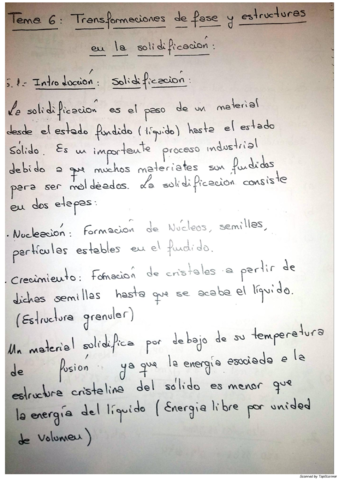 Tema 6: Transformaciones de fase y estructuras
en la solidificación:
5.1.- Introducción: Solidificación:
La solidificación es el paso de un material
desde el estado fundido (líquido) hasta el estado
sólido. Es un importante proceso industrial
debido a que muchos materiales son fundidos
para ser moldeados. La solidificación consiste
en dos etapas:
· Nucleación: Formación de Núcleos, semillas,
partículas estables en el fundido.
· Crecimiento: Formación de cristales a partir de
dichas semillas hasta que se acaba el líquido.
(Estructura granular)
Un material solidifica por debajo de su temperatura
de fusión ya que la energía asociada a la
estructura cristalina del sólido es menor que
la energía del líquido (Energía libre por unidad
de volumen)
Scanned by TapScanner